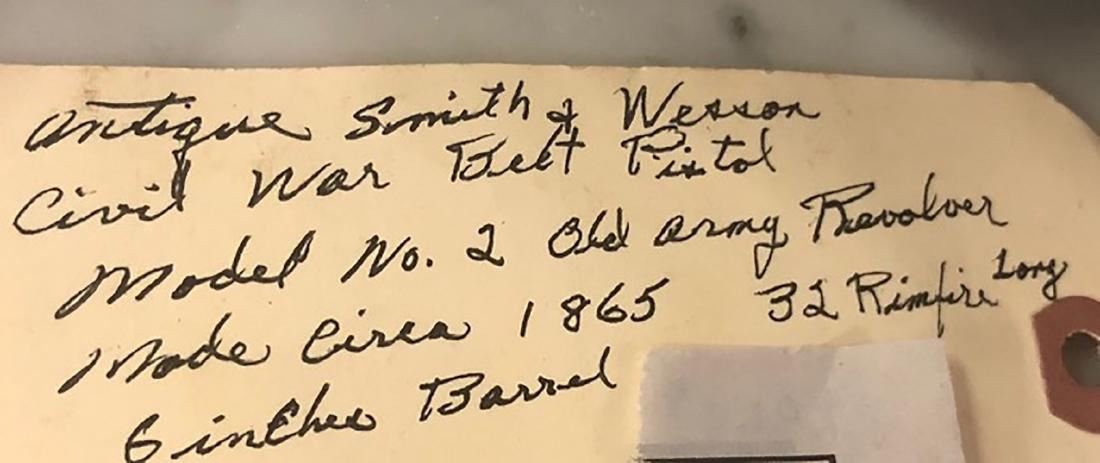 Antique Smith & Wesson
Civil War Belt Pistol
Model No. 2 Old Army Revolver
Made Circa 1865 32 Rimfire Long
6 inches Barrel